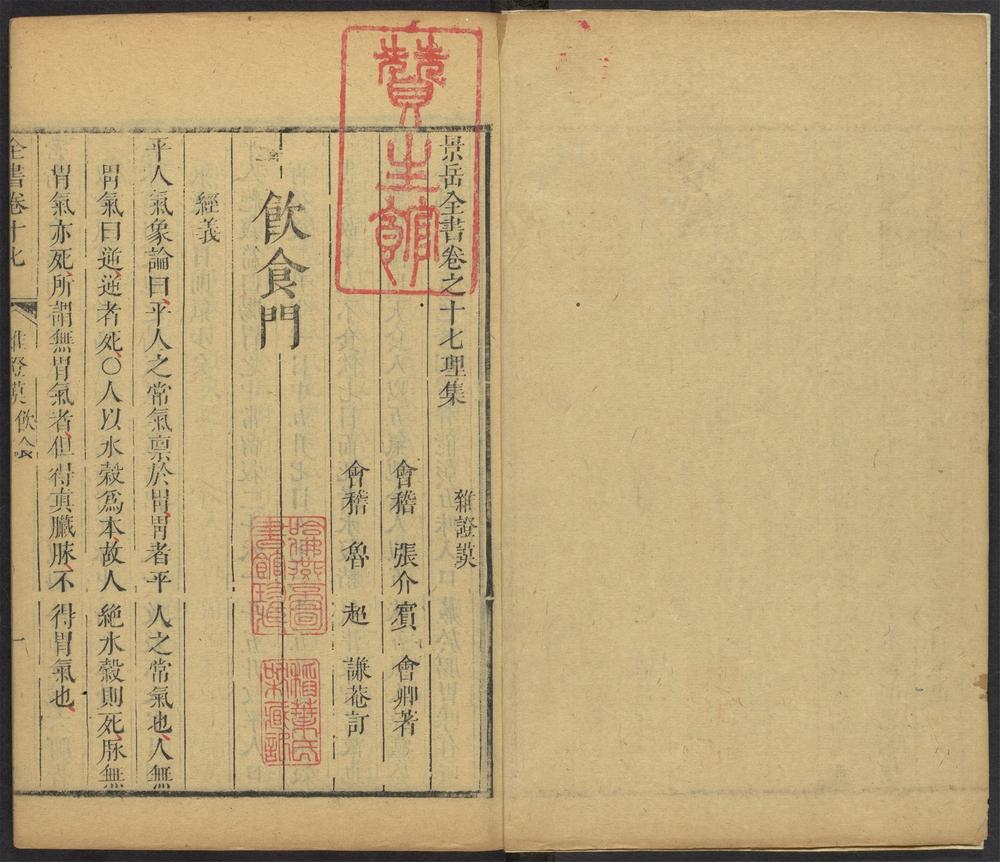 景岳全書卷之十七理集
雜證謨
會稽 張介賓 會卿著
會稽 魯 超 謙菴訂
飲食門
經義
平人氣象論曰、平人之常氣稟於胃、胃者平人之常氣也、人無
胃氣曰逆、逆者死、○人以水穀爲本、故人絕水穀則死、脈無
胃氣亦死、所謂無胃氣者、但得真臟脈、不得胃氣也、
全書卷十七 雜證謨 飲食 一
贊生館
哈佛燕京圖書館珍藏